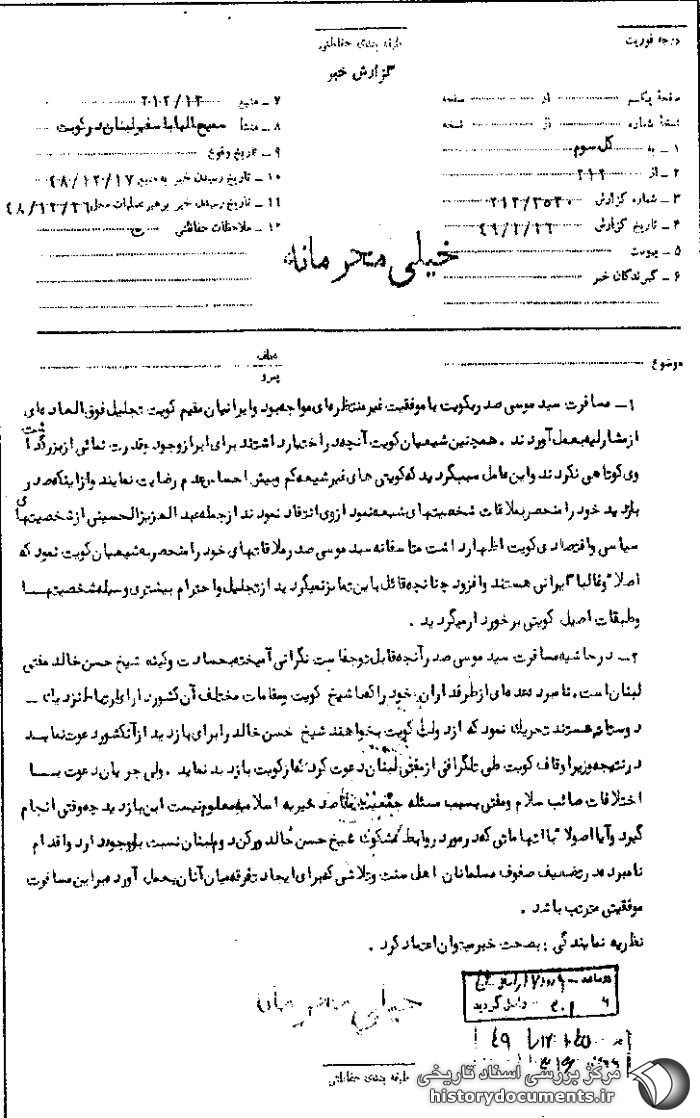 درجه فوریت
طبقه بندی حفاظتی
گزارش خبر
صفحهٔ یکم از صفحه
نسخهٔ شماره از نسخه
۱ ـ به کل سوم
۲ ـ از ۲۱۲
۳ ـ شماره گزارش ۲۱۲/۲۵۳۰
۴ ـ تاریخ گزارش ۴۹/۱/۱۶
۵ ـ پیوست
۶ ـ گیرندگان خبر
۷ ـ منبع ۲۰۱۲/۱۳
۸ ـ منشأ سفیر لبنان در کویت
۹ ـ تاریخ وقوع
۱۰ ـ تاریخ رسیدن خبر به منبع ۴۸/۱۲/۱۷
۱۱ ـ تاریخ رسیدن خبر برهبر عملیات محل ۴۸/۱۲/۲۶
۱۲ ـ ملاحظات حفاظتی
خیلی محرمانه
موضوع
عطف
پیرو
۱ـ مسافرت سید موسی صدر بکویت با موفقیت غیر منتظره‌ای مواجه بود و ایرانیان مقیم کویت تجلیل فوق‌العاده‌ای
از مشارلیه بعمل آوردند . همچنین شیعیان کویت آنچه در اختیار داشتند برای ابراز وجود و قدرت نمائی از بزرگداشت
وی کوتاهی نکردند و این عامل سبب گردید که کویتی های غیر شیعه کم و بیش احساس عدم رضایت نمایند و از اینکه صدر
بازدید خود را منحصر بملاقات شخصیتهای شیعه نمود از وی انتقاد نمودند از جمله عبد العزیز الحسینی از شخصیتهای
سیاسی و اقتصادی کویت اظهار داشت متاسفانه سید موسی صدر ملاقاتهای خود را منحصر به شیعیان کویت نمود که
اصلا" و غالبا" ایرانی هستند و افزود چنانچه قائل باین تمایز نمیگردید از تجلیل و احترام بیشتری وسیله شخصیتهـا
و طبقات اصیل کویتی برخوردار میگردید .
۲ـ در حاشیه مسافرت سید موسی صدر آنچه قابل توجه است نگرانی آمیخته بحسادت و کینه شیخ حسن خالد مفتی
لبنان است. نامبرده عده‌ای از طرفداران خود را که با شیخ کویت و مقامات مختلف آن کشور دارای ارتباط نزدیک ـ
دوستانه هستند تحریک نمود که از دولت کویت بخواهند شیخ حسن خالد را برای بازدید از آنکشور دعوت نماید
در نتیجه وزیر اوقاف کویت طی تلگرافی از مفتی لبنان دعوت کرد که از کویت بازدید نماید . ولی جریان دعوت بسـا
اختلافات صائب سلام و مفتی بسبب مسئله جمعیت مقاصد خیریه اسلامیه معلوم نیست این بازدید چه وقتی انجام
گیرد و آیا اصولا" با اتهاماتی که در مورد روابط مشکوک شیخ حسن خالد و رکن دوم لبنان نسبت باو وجود دارد و اقدام
نامبرده در تضعیف صفوف مسلمانان اهل سنت و تلاشی که برای ایجاد تفرقه میان آنان بعمل آورده بر این مسافرت
موفقیتی مترتب باشد .
نظریه نمایندگی : بصحت خبر میتوان اعتماد کرد .
خیلی محرمانه
وارد گردید
طبقه بندی حفاظتی
مرکز بررسی اسناد تاریخی
historydocuments.ir